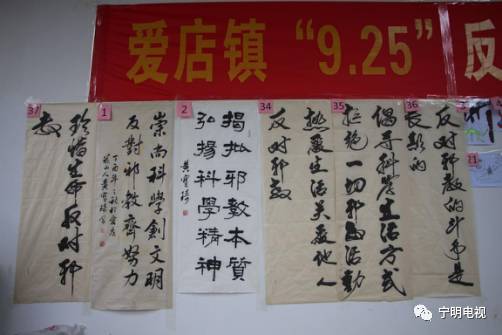 爱店镇“9.25”反
37
珍惜生命反对邪
教
1
崇尚科學創文明
反對邪教齊努力
丁酉年之秋於愛店
2
揭批邪教本質
弘揚科學精神
黄寶琦
34
热爱生活关爱他人
反对邪教
35
倡导科学生活方式
拒绝一切邪教活动
36
反对邪教的斗争是
长期的
21
宁明电视